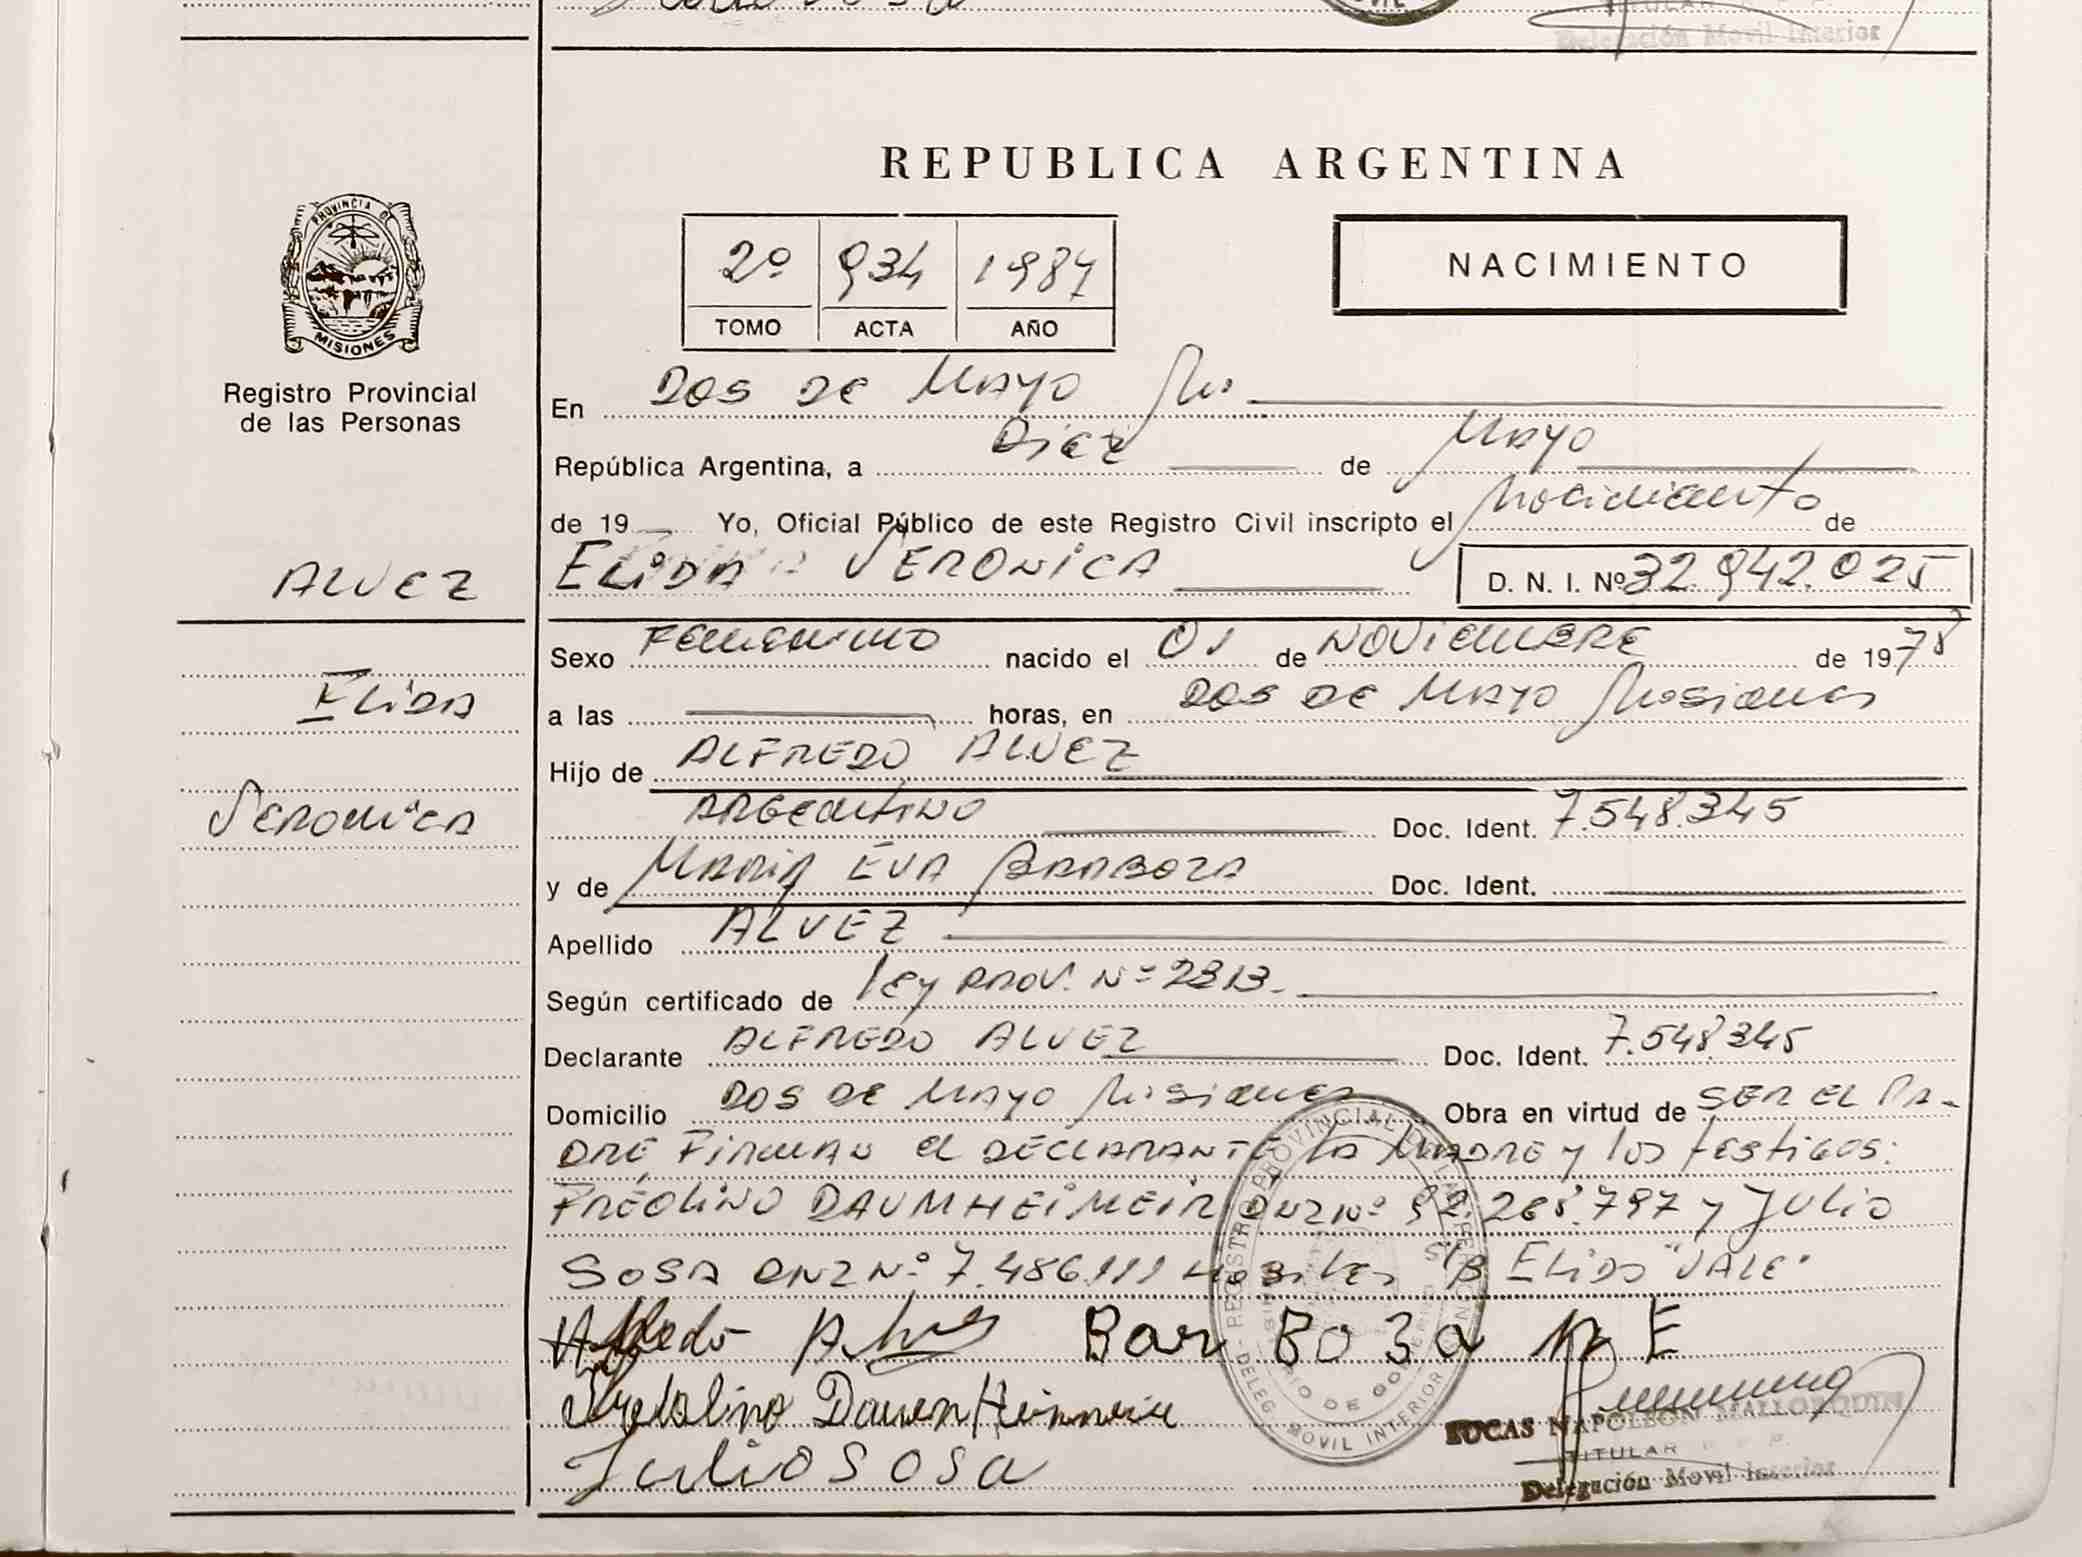 Delegación Movil Interior
REPUBLICA ARGENTINA
PROVINCIA DE
MISIONES
Registro Provincial
de las Personas
2º 934 1987
TOMO ACTA AÑO
NACIMIENTO
En DOS DE MAYO Mis
República Argentina, a Diez de Mayo
de 19 Yo, Oficial Público de este Registro Civil inscripto el Nacimiento de
ELIDA VERONICA D. N. I. Nº 32.942.025
ALVEZ
ELIDA
VERONICA
Sexo FEMENINO nacido el 01 de NOVIEMBRE de 1978
a las horas, en DOS DE MAYO Misiones
Hijo de ALFREDO ALVEZ
ARGENTINO Doc. Ident. 7.548.345
y de MARIA EVA BARBOZA Doc. Ident.
Apellido ALVEZ
Según certificado de ley PROV. Nº 2313.
Declarante ALFREDO ALVEZ Doc. Ident. 7.548.345
Domicilio DOS DE MAYO Misiones Obra en virtud de SER EL PA-
DRE, FIRMAN el DECLARANTE la MADRE y los testigos:
FREOLINO DAUMHEIMEIR DNI Nº 92.268.797 y JULIO
SOSA DNI Nº 7.486.111 S/B ELIDA "VALE"
Alfredo Alves BarBoza M E
Daunheimeir
Julio Sosa
REGISTRO PROVINCIAL DE LAS PERSONAS
MINISTERIO DE GOBIERNO
DELEG. MOVIL INTERIOR
LUCAS NAPOLEON MALLORQUIN
TITULAR R. P. P.
Delegación Movil Interior